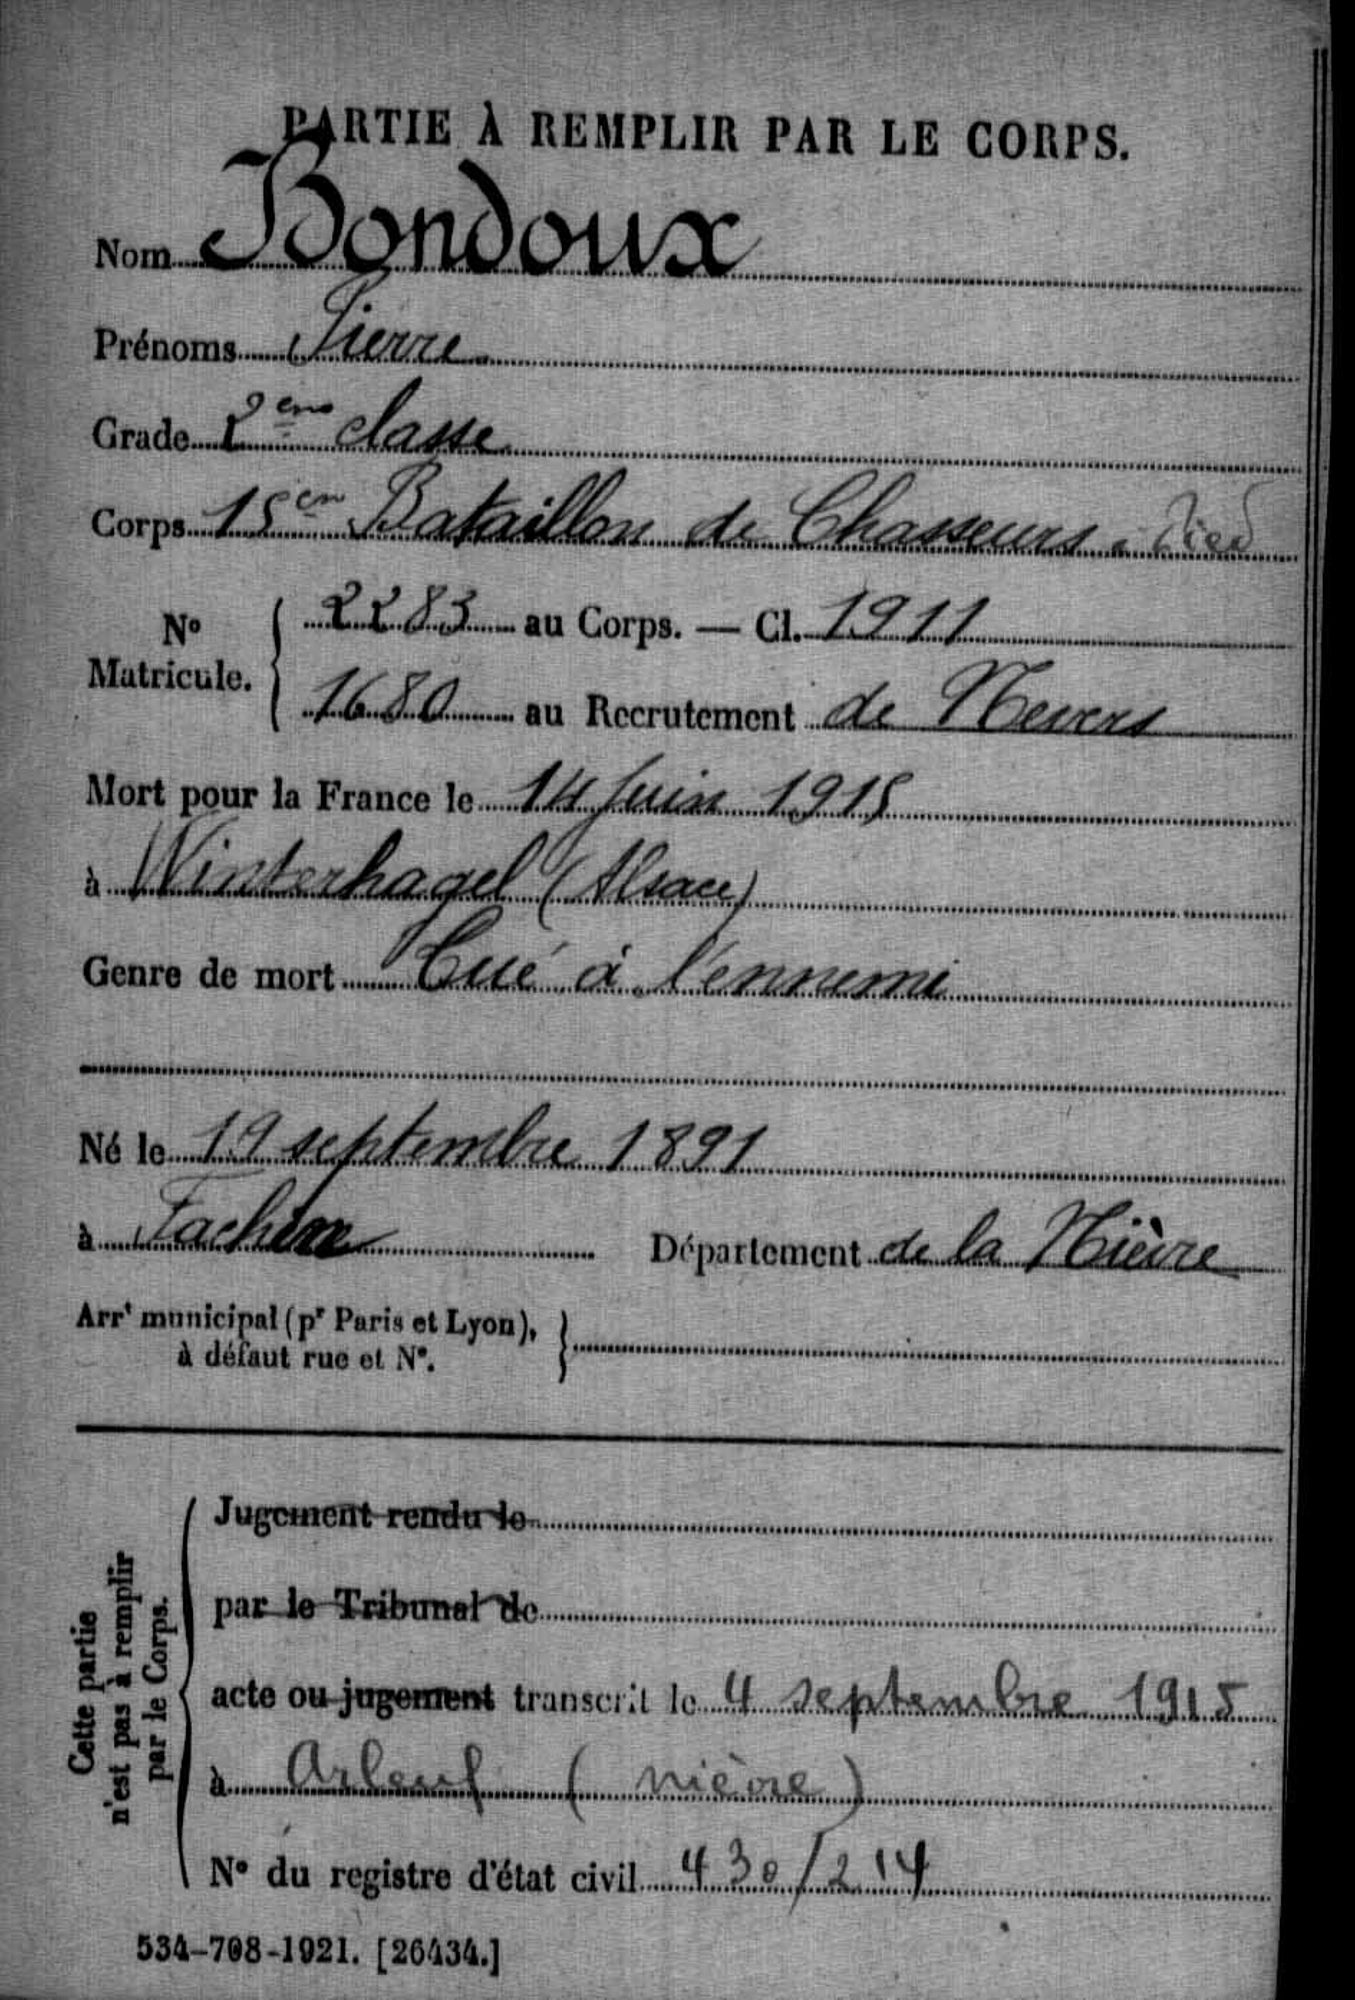 PARTIE À REMPLIR PAR LE CORPS.
Nom Bondoux
Prénoms Pierre
Grade 2ème classe
Corps 15em Bataillon de Chasseurs à Pied
N° Matricule. 2283 au Corps. — Cl. 1911
1680 au Recrutement de Nevers
Mort pour la France le 14 Juin 1915
à Winterhagel (Alsace)
Genre de mort Tué à l'ennemi
Né le 19 septembre 1891
à Fachin Département de la Nièvre
Arrt municipal (pr Paris et Lyon),
à défaut rue et N°.
Cette partie
n'est pas à remplir
par le Corps.
Jugement rendu le
par le Tribunal de
acte ou jugement transcrit le 4 septembre 1915
à Arleuf (nièvre)
N° du registre d'état civil 430/214
534-708-1921. [26434.]